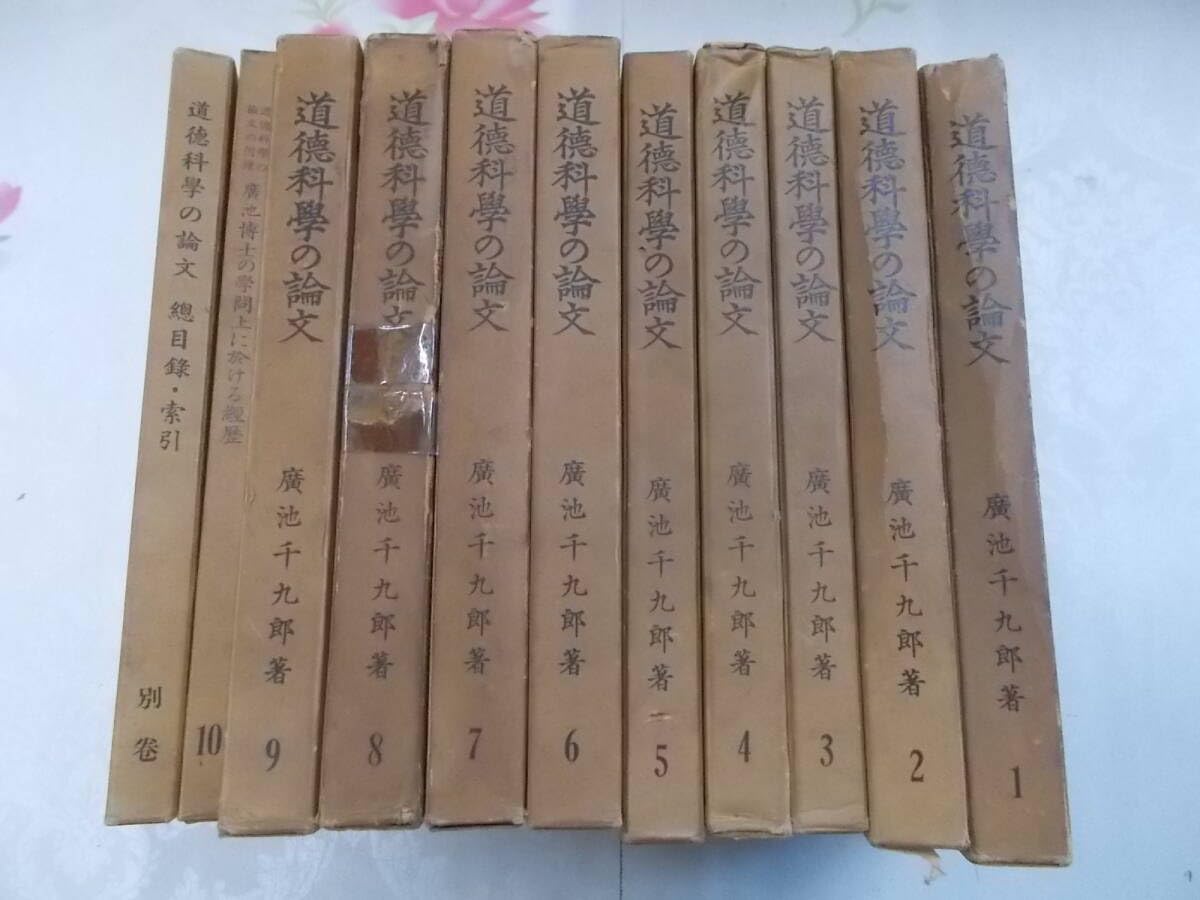 道德科學の論文
廣池千九郎著
1
道德科學の論文
廣池千九郎著
2
道德科學の論文
廣池千九郎著
3
道德科學の論文
廣池千九郎著
4
道德科學の論文
廣池千九郎著
5
道德科學の論文
廣池千九郎著
6
道德科學の論文
廣池千九郎著
7
道德科學の論文
廣池千九郎著
8
道德科學の論文
廣池千九郎著
9
道德科學の
論文の附錄
廣池博士の學問上に於ける經歷
10
道德科學の論文 總目錄・索引
別卷